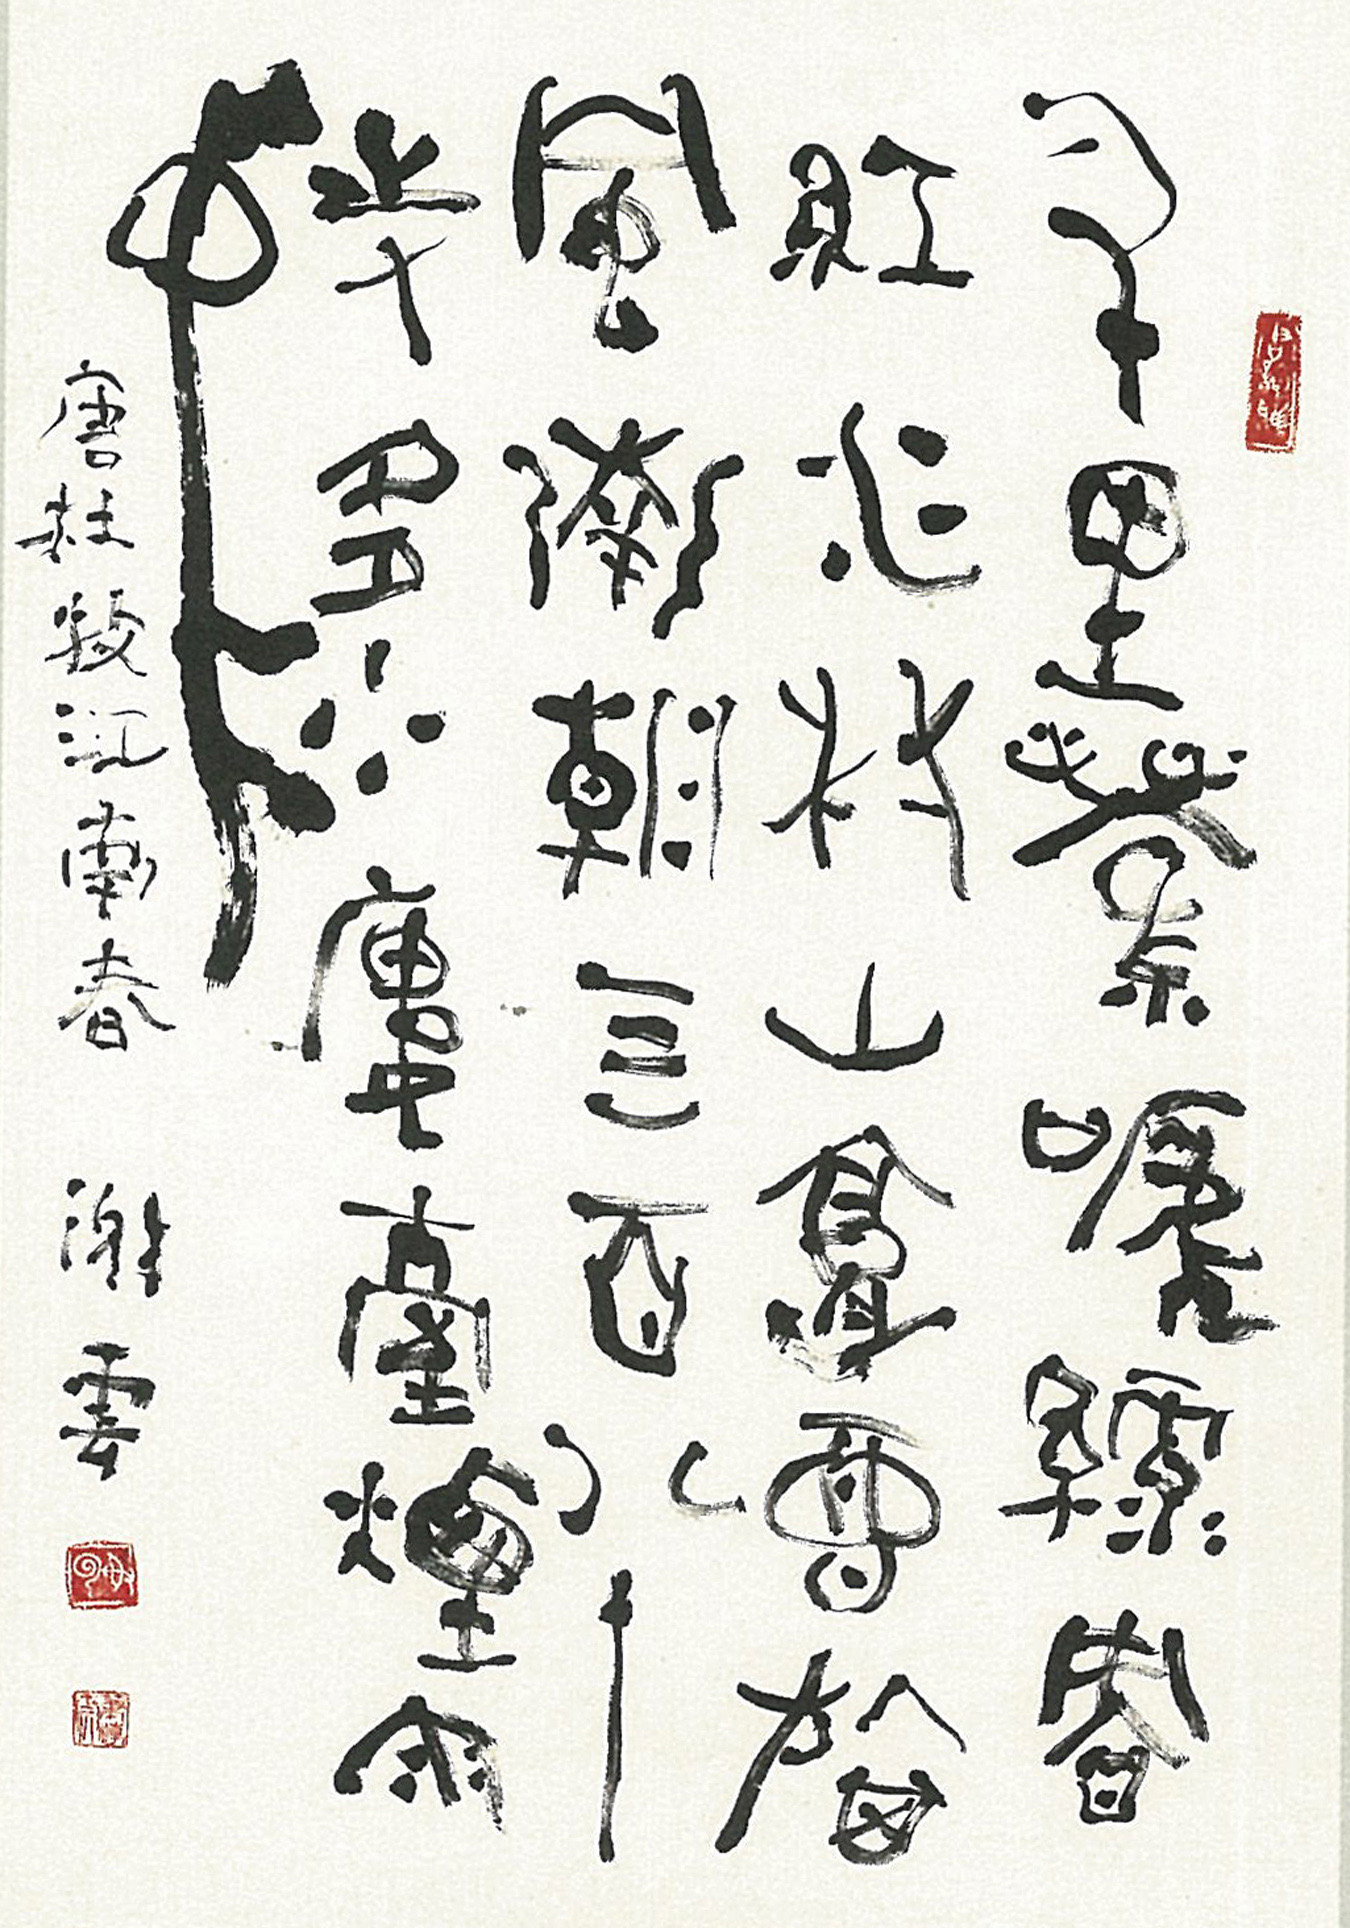 千里鶯嗁綠映
紅水村山郭酒旗
風南朝四百八十
寺多少樓臺煙雨
中
唐杜牧江南春 謝雲